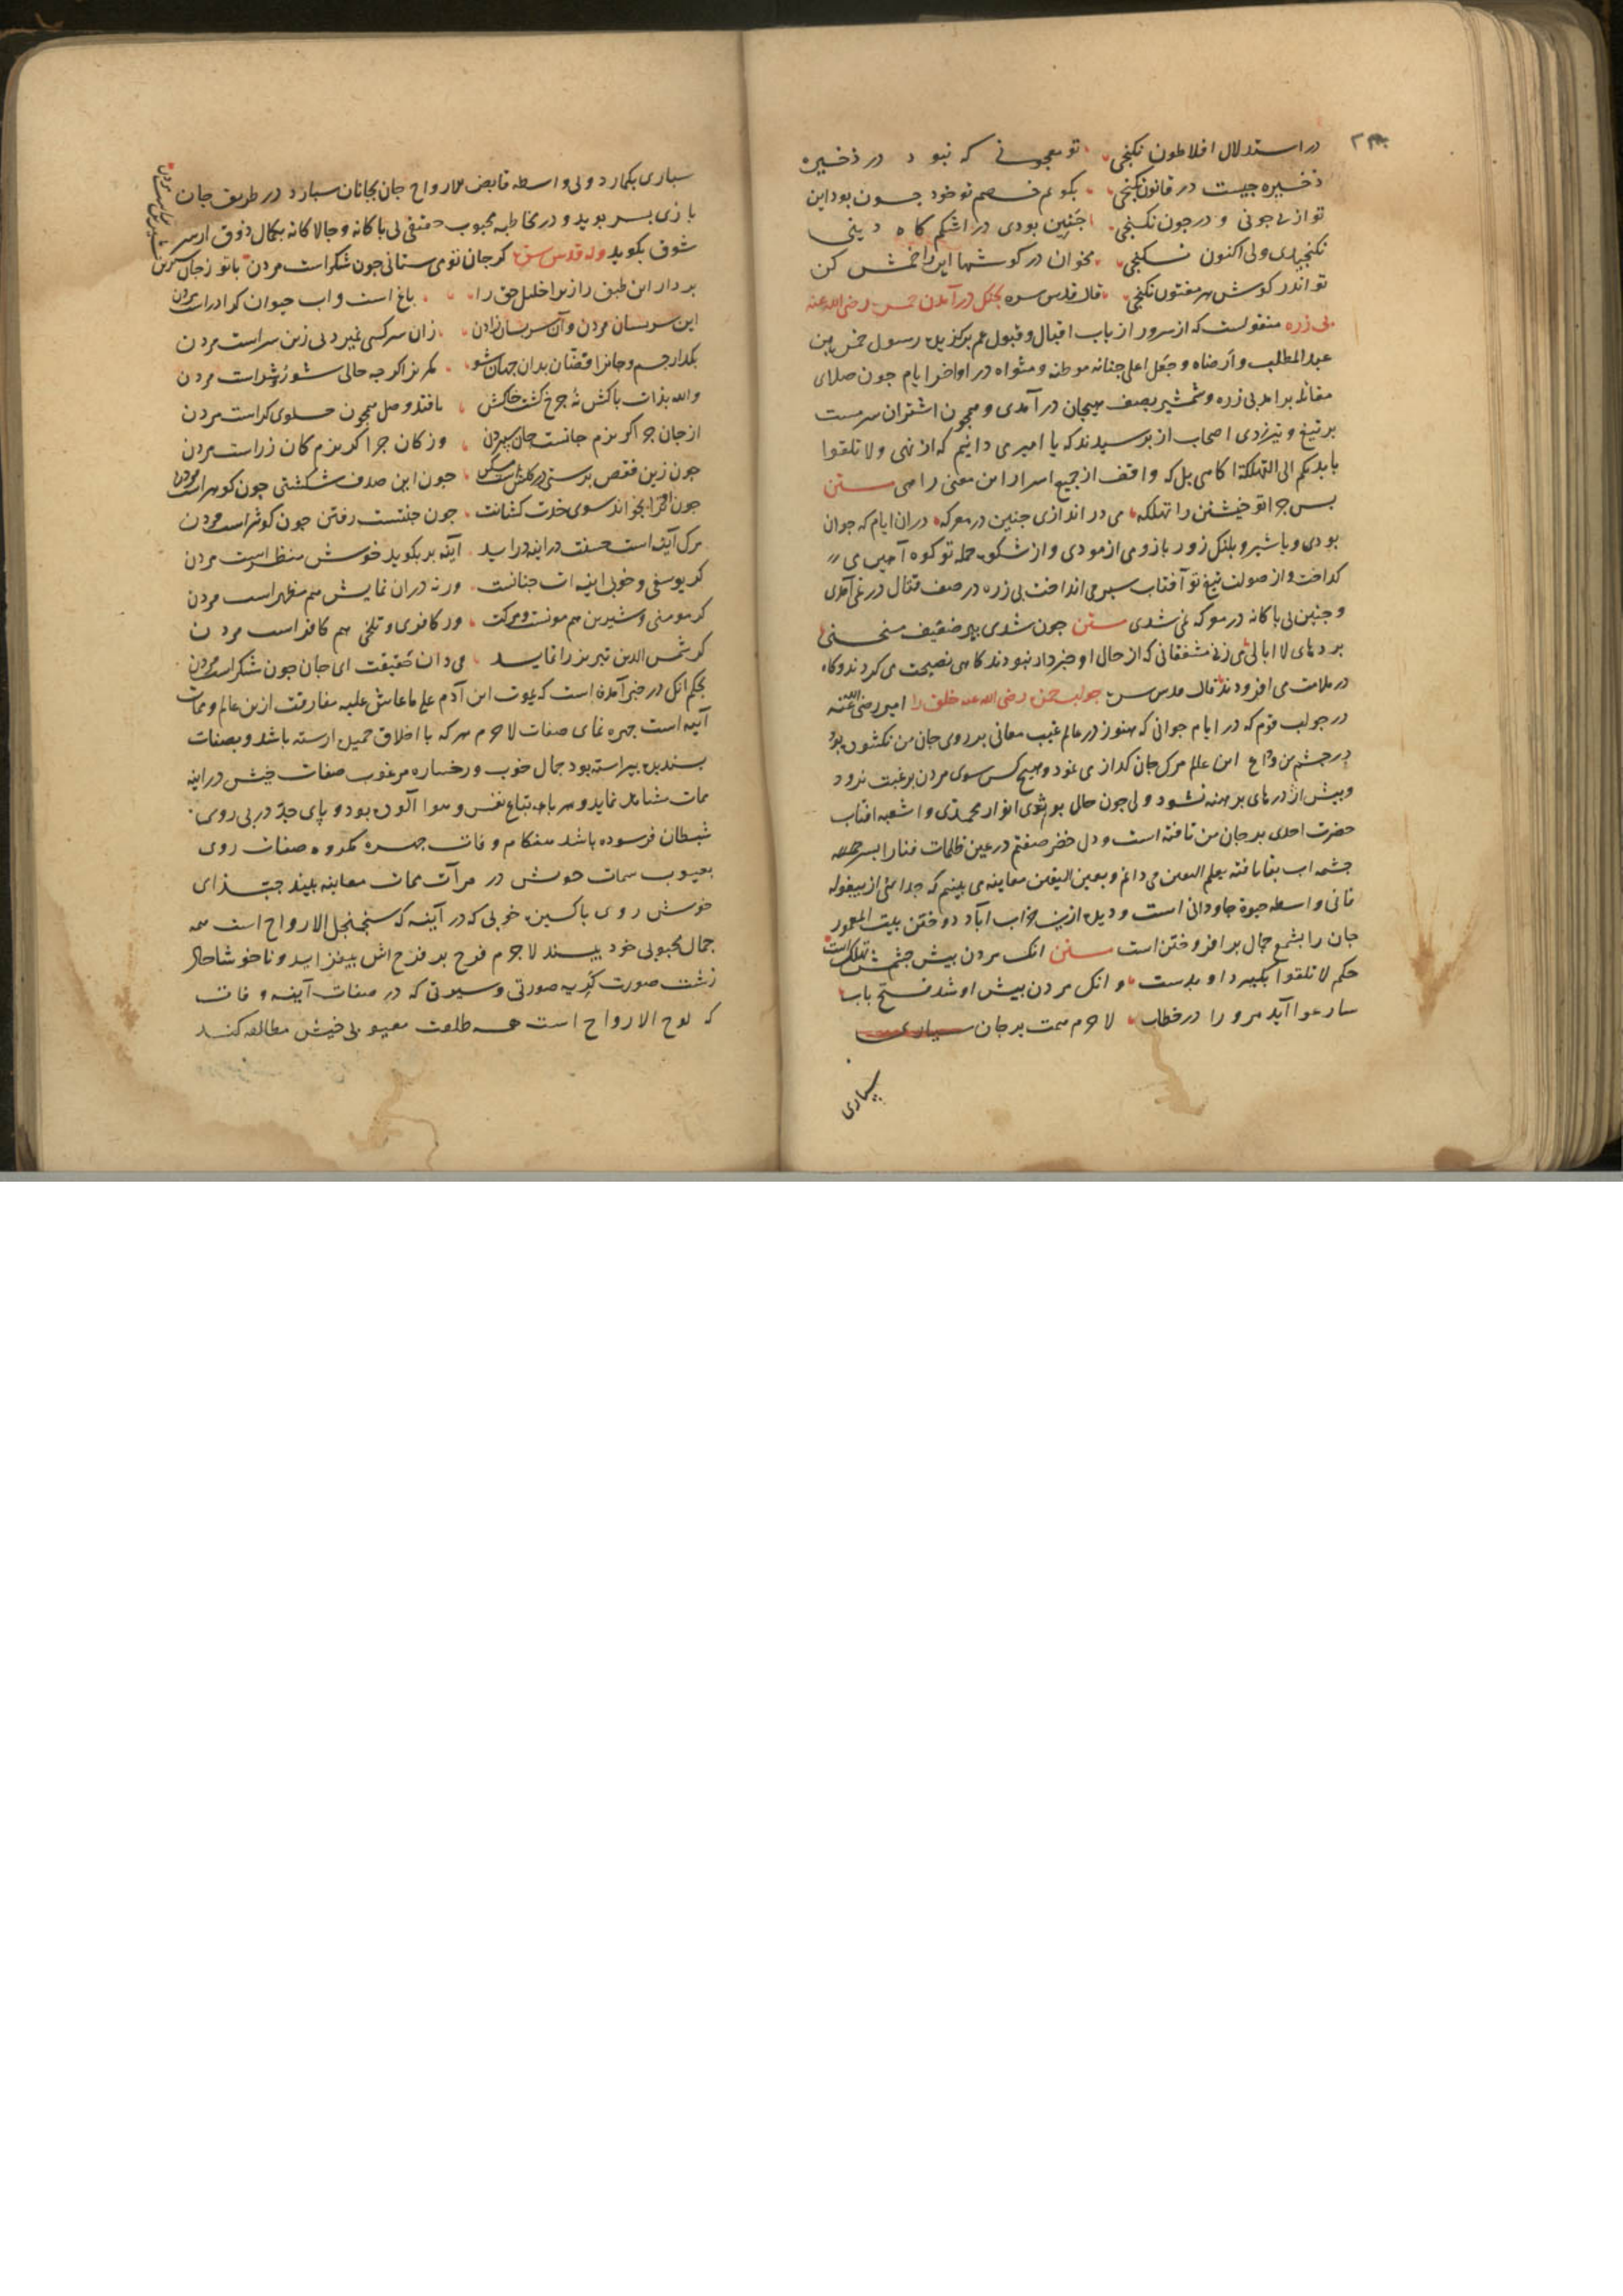 در استدلال افلاطون نکنجی تو معجونی که نبود در ذخیره
ذخیره جیست در قانون نکنجی بکویم خصم تو خود جون بود این
تو از بی جونی و در جون نکنجی جنین بودی در اشکم کاه دینی
نکنجیدی ولی اکنون نکنجی مخوان در کوشها این را خمش کن
تو اندر کوش هر مفتون نکنجی قال قدس سره بجنک در آمدن حمزه رضی الله عنه
بی زره منقولست که از سرور ارباب اقبال و قبول عم برکزیده رسول حمزه بن
عبد المطلب و ارضاه و جعل اعلی جنانه موطنه و مثواه در اواخر ایام جون صلای
مقاتله برامد بی زره و شمشیر بصف هیجان در آمدی و همجون اشتران سرمست
بر تیغ و تیر زدی اصحاب از و برسیدند که یا امیر می دانیم که از نهی ولا تلقوا
بایدیکم الی التهلکة اکاهی بل که واقف از جمیع اسرار این معنی راهی ستن
بس جرا تو خیشتن را تهلکه می در اندازی جنین در معرکه در ان ایام که جوان
بودی و با شیر و بلنک زور بازو می ازمودی و از شکوه حمله تو کوه آهنین می
کداخت و از صولت تیغ تو آفتاب سبر می انداخت بی زره در صف قتال در نمی آمدی
و جنین بی باکانه در معرکه نمی شدی ستن جون شدی بیر ضعیف منحنی
بردهای لا ابالی می زنی مشفقانی که از حال او خبردار نبودند کاهی نصیحت می کردند و کاه
در ملامت می افزودند قال قدس سره جواب حمزه رضی الله عنه خلق را امیر رضی الله عنه
در جواب قوم که در ایام جوانی که هنوز در عالم غیب معانی بر روی جان من نکشوده بود
در جشم من وداع این عالم مرک جان کداز می نمود و هیج کس سوی مردن برغبت نرود
و بیش اژدرهای برهنه نشود ولی جون حال برتوی انوار محمدی و اشعه افتاب
حضرت احدی بر جان من تافته است و دل خضر صفتم در عین ظلمات فنا را بسر
جشمه اب بقا یافته بعلم الیقین می دانم و بعین الیقین معاینه می بینم که جدایی از بیغوله
فانی واسطه حیوة جاودانی است و دیده ازین خراب آباد دوختن بیت المعمور
جان را بشمع جمال برافروختن است ستن انک مردن بیش جشمش تهلکه است
حکم لا تلقوا بکیرد او بدست و انک مردن بیش او شد فتح باب
سارعوا آید مرو را در خطاب لاجرم همت بر جان
سپاری
سباری بکمارد و بی واسطه قابض الارواح جان بجانان سبارد در طریق جان
بازی بسر بوید و در مخاطبه محبوب حقیقی بی باکانه و جالاکانه بکمال ذوق ار سر
شوق بکوید وله قدس سره کر جان تو می ستانی جون شکر است مردن با تو ز جان شیرین
شیرین تر است مردن
بردار این طبق را زیرا خلیل حق را باغ است و اب حیوان کر اذر است مردن
این سر نشان مردن و آن سر نشان زادن زان سر کسی نمیرد نی زین سر است مردن
بکدار جسم و جان را رقصان بدان جهان شو مکریز اکرجه حالی شور و شر است مردن
والله بذات باکش نه جرخ کشت خاکش با قند وصل همجون حلوای کر است مردن
از جان جرا کریزم جانست جان سبردن وز کان جرا کریزم کان زر است مردن
جون زین قفص برستی در کلشن است مسکن جون این صدف شکستی جون کوهر است مردن
جون حق ترا بخواند سوی خودت کشانت جون جنتست رفتن جون کوثر است مردن
مرک آینه است حسنت در اینه دراید آینه بر بکوید خوش منظر است مردن
کر یوسفی و خوبی اینه ات جنانست ورنه دران نمایش هم مظهر است مردن
کر مومنی و شیرین هم مونست مرکت ور کافری و تلخی هم کافر است مردن
کر شمس الدین تبریز را نماید می دان حقیقت ای جان جون شکر است مردن
بحکم انک در خبر آمده است که یموت ابن آدم علی ما عاش علیه مفارقت ازین عالم و ممات
آینه است جهره نمای صفات لاجرم هر که با اخلاق حمیده ارسته باشد و بصفات
بسندیده بیراسته بود جمال خوب و رخساره مرغوب صفات خیش در اینه
ممات مشاهده نماید و هر با اتباع نفس و هوا آلوده بود و پای جد در بی روی
شیطان فرسوده باشد هنکام وفات جهره مکروه صفات روی
بعیوب سمات خویش در مرآت ممات معاینه بیند حبذا ای
خوش روی باکیزه خوبی که در آینه که سجنجل الارواح است همه
جمال محبوبی خود بیند لاجرم فرح بر فرح اش بیفزاید و ناخوشا حال
زشت صورت کریه صورتی و سیرتی که در صفات آینه وفات
که لوح الارواح است همه طلعت معیوبی خیش مطالعه کند